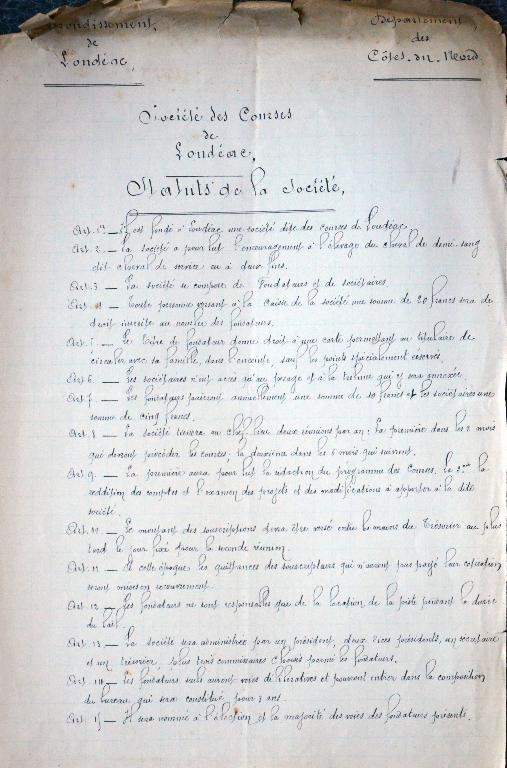 Arrondissement
de
Loudéac
Département
des
Côtes-du-Nord
Société des Courses
de
Loudéac,
Statuts de la Société,
Art. 1er — Il est fondé à Loudéac une société dite des courses de Loudéac
Art. 2 — La société a pour but l'encouragement à l'élevage du cheval de demi-sang
dit cheval de service ou à deux fins.
Art. 3 — La société se compose de fondateurs et de sociétaires.
Art. 4 — Toute personne versant à la caisse de la société une somme de 20 francs sera de
droit inscrite au nombre des fondateurs.
Art. 5 — Le titre de fondateur donne droit à une carte permettant au titulaire de
circuler avec sa famille, dans l'enceinte, sauf les points spécialement réservés.
Art. 6 — Les sociétaires n'ont accès qu'au pesage et à la tribune qui y sera annexée.
Art. 7 — Les fondateurs paieront annuellement une somme de 10 francs et les sociétaires une
somme de cinq francs.
Art. 8 — La société tiendra au chef-lieu deux réunions par an : la première dans les 2 mois
qui devront précéder les courses, la deuxième dans les 6 mois qui suivront.
Art. 9 — La première aura pour but la rédaction du programme des courses, la 2me la
reddition des comptes et l'examen des projets et des modifications à apporter à la dite
société.
Art. 10 — Le montant des souscriptions devra être versé entre les mains du Trésorier au plus
tard le jour fixé pour la seconde réunion.
Art. 11 — A cette époque les quittances des souscripteurs qui n'auront pas payé leur cotisation
seront mises en recouvrement.
Art. 12 — Les fondateurs ne sont responsables que de la location de la piste pendant la durée
du bail.
Art. 13 — La société sera administrée par un président, deux vices présidents, un secrétaire
et un trésorier, plus trois commissaires choisis parmi les fondateurs.
Art. 14 — Les fondateurs seuls auront voies délibératives et pourront entrer dans la composition
du bureau qui sera constitué pour 3 ans.
Art. 15 — Il sera nommé à l'élection et la majorité des voies des fondateurs présents.